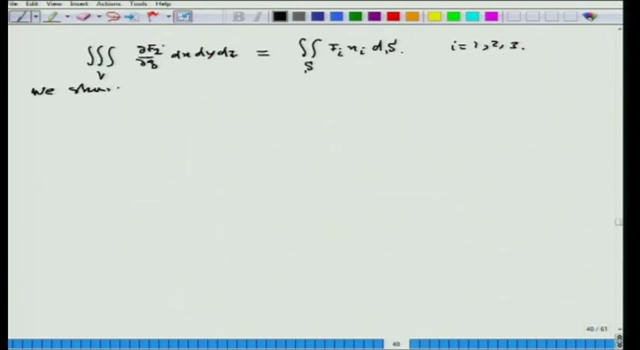 View Insert Actions Tools Help
∭_V ∂F_i/∂x_i dx dy dz = ∬_S F_i n_i dS. i=1,2,3.
we show
40 / 61
40